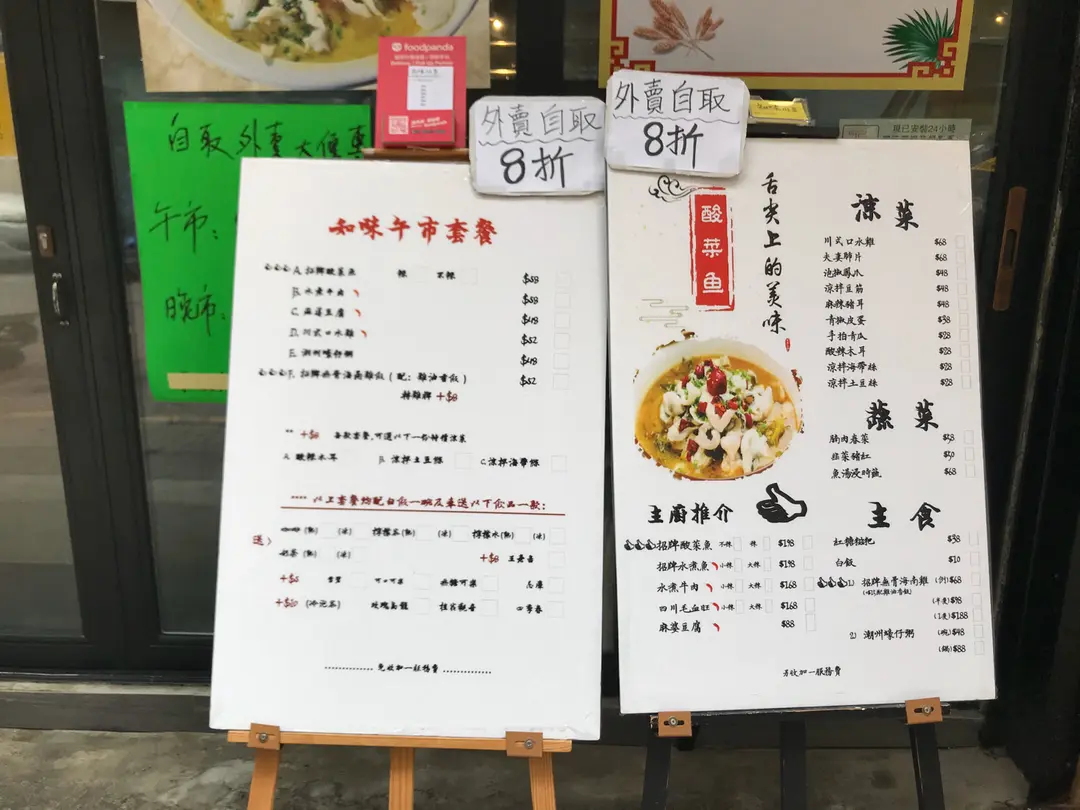 foodpanda
外賣自取
8折
外賣自取
8折
自取外賣大優惠
午市：
晚市：
現已安裝24小時
和味午市套餐
A. 招牌酸菜魚 辣 不辣 $58
B. 水煮牛肉 $58
C. 麻婆豆腐 $48
D. 川式口水雞 $52
E. 潮州蠔仔粥 $48
F. 招牌無骨海南雞飯（配：雞油香飯） $52
+$8
** +$8 各款套餐，可選以下一份特價涼菜
A. 酸辣木耳 B. 涼拌土豆絲 C. 涼拌海帶絲
**** 以上套餐均配白飯一碗及奉送以下飲品一款：
送>
咖啡（熱）（冰） 檸檬茶（熱）（冰） 檸檬水（熱）（冰）
奶茶（熱）（冰） +$8 王老吉
+$5 雪碧 可口可樂 無糖可樂 忌廉
+$10（冷泡茶） 玫瑰烏龍 桂花觀音 四季春
免收加一服務費
酸菜鱼
舌尖上的美味
涼菜
川式口水雞 $68
夫妻肺片 $68
泡椒鳳爪 $48
涼拌豆筋 $48
麻辣豬耳 $48
青椒皮蛋 $38
手拍青瓜 $28
酸辣木耳 $28
涼拌海帶絲 $28
涼拌土豆絲 $28
蔬菜
腩肉春菜
韭菜豬紅
魚湯浸時蔬 $68
主廚推介
招牌酸菜魚 不辣 辣 $198
招牌水煮魚 小辣 大辣 $198
水煮牛肉 小辣 大辣 $168
四川毛血旺 小辣 大辣 $168
麻婆豆腐 $88
主食
紅糖糍粑 $38
白飯 $10
1) 招牌無骨海南雞（例）$68
（半隻）$98
（1隻）$188
2) 潮州蠔仔粥（碗）$48
（鍋）$88
另收加一服務費